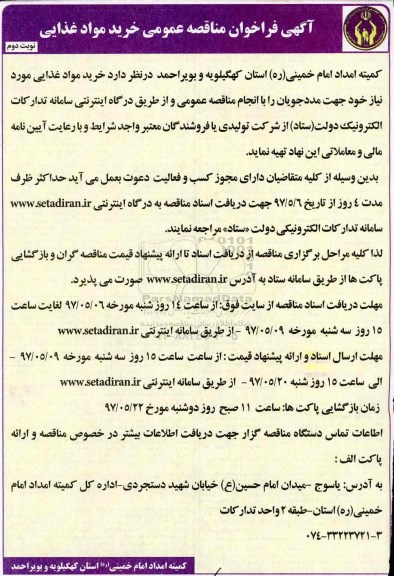 آگهی فراخوان مناقصه عمومی خرید مواد غذایی
نوبت دوم
کمیته امداد امام خمینی(ره) استان کهگیلویه و بویراحمد درنظر دارد خرید مواد غذایی مورد
نیاز خود جهت مددجویان را با انجام مناقصه عمومی و از طریق درگاه اینترنتی سامانه تدارکات
الکترونیک دولت(ستاد) از شرکت تولیدی یا فروشندگان معتبر واجد شرایط و با رعایت آیین نامه
مالی و معاملاتی این نهاد تهیه نماید.
بدین وسیله از کلیه متقاضیان دارای مجوز کسب و فعالیت دعوت بعمل می آید حداکثر ظرف
مدت ۴ روز از تاریخ ۹۷/۵/۶ جهت دریافت اسناد مناقصه به درگاه اینترنتی www.setadiran.ir
سامانه تدارکات الکترونیکی دولت «ستاد» مراجعه نمایند.
لذا کلیه مراحل برگزاری مناقصه از دریافت اسناد تا ارائه پیشنهاد قیمت مناقصه گران و بازگشایی
پاکت ها از طریق سامانه ستاد به آدرس www.setadiran.ir صورت می پذیرد.
مهلت دریافت اسناد مناقصه از سایت فوق: از ساعت ۱۴ روز شنبه مورخه ۹۷/۰۵/۰۶ لغایت ساعت
۱۵ روز سه شنبه مورخه ۹۷/۰۵/۰۹ - از طریق سامانه اینترنتی www.setadiran.ir
مهلت ارسال اسناد و ارائه پیشنهاد قیمت : از ساعت ساعت ۱۵ روز سه شنبه مورخه ۹۷/۰۵/۰۹ -
الی ساعت ۱۵ روز شنبه ۹۷/۰۵/۲۰ - از طریق سامانه اینترنتی www.setadiran.ir
زمان بازگشایی پاکت ها: ساعت ۱۱ صبح روز دوشنبه مورخ ۹۷/۰۵/۲۲
اطاعات تماس دستگاه مناقصه گزار جهت دریافت اطلاعات بیشتر در خصوص مناقصه و ارائه
پاکت الف :
به آدرس: یاسوج -میدان امام حسین(ع) خیابان شهید دستجردی-اداره کل کمیته امداد امام
خمینی(ره) استان-طبقه ۲ واحد تدارکات
۰۷۴-۳۳۲۲۳۷۲۱-۳
کمیته امداد امام خمینی(ره) استان کهگیلویه و بویراحمد